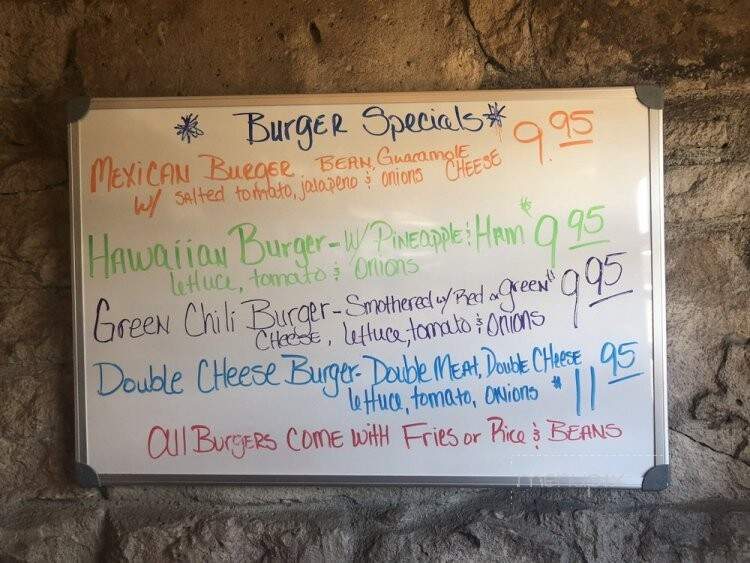 * Burger Specials *
MEXICAN BURGER BEAN, Guacamole CHEESE 9.95
w/ salted tomato, jalapeno & onions
HAWAIIAN Burger - W/ PINEAPPLE & HAM $9 95
lettuce, tomato & onions
Green Chili Burger - Smothered w/ Red or Green $9 95
CHEESE, lettuce, tomato & Onions
Double CHeese Burger - Double Meat, Double CHeese $11 95
lettuce, tomato, onions
All Burgers Come With Fries or Rice & BEANS